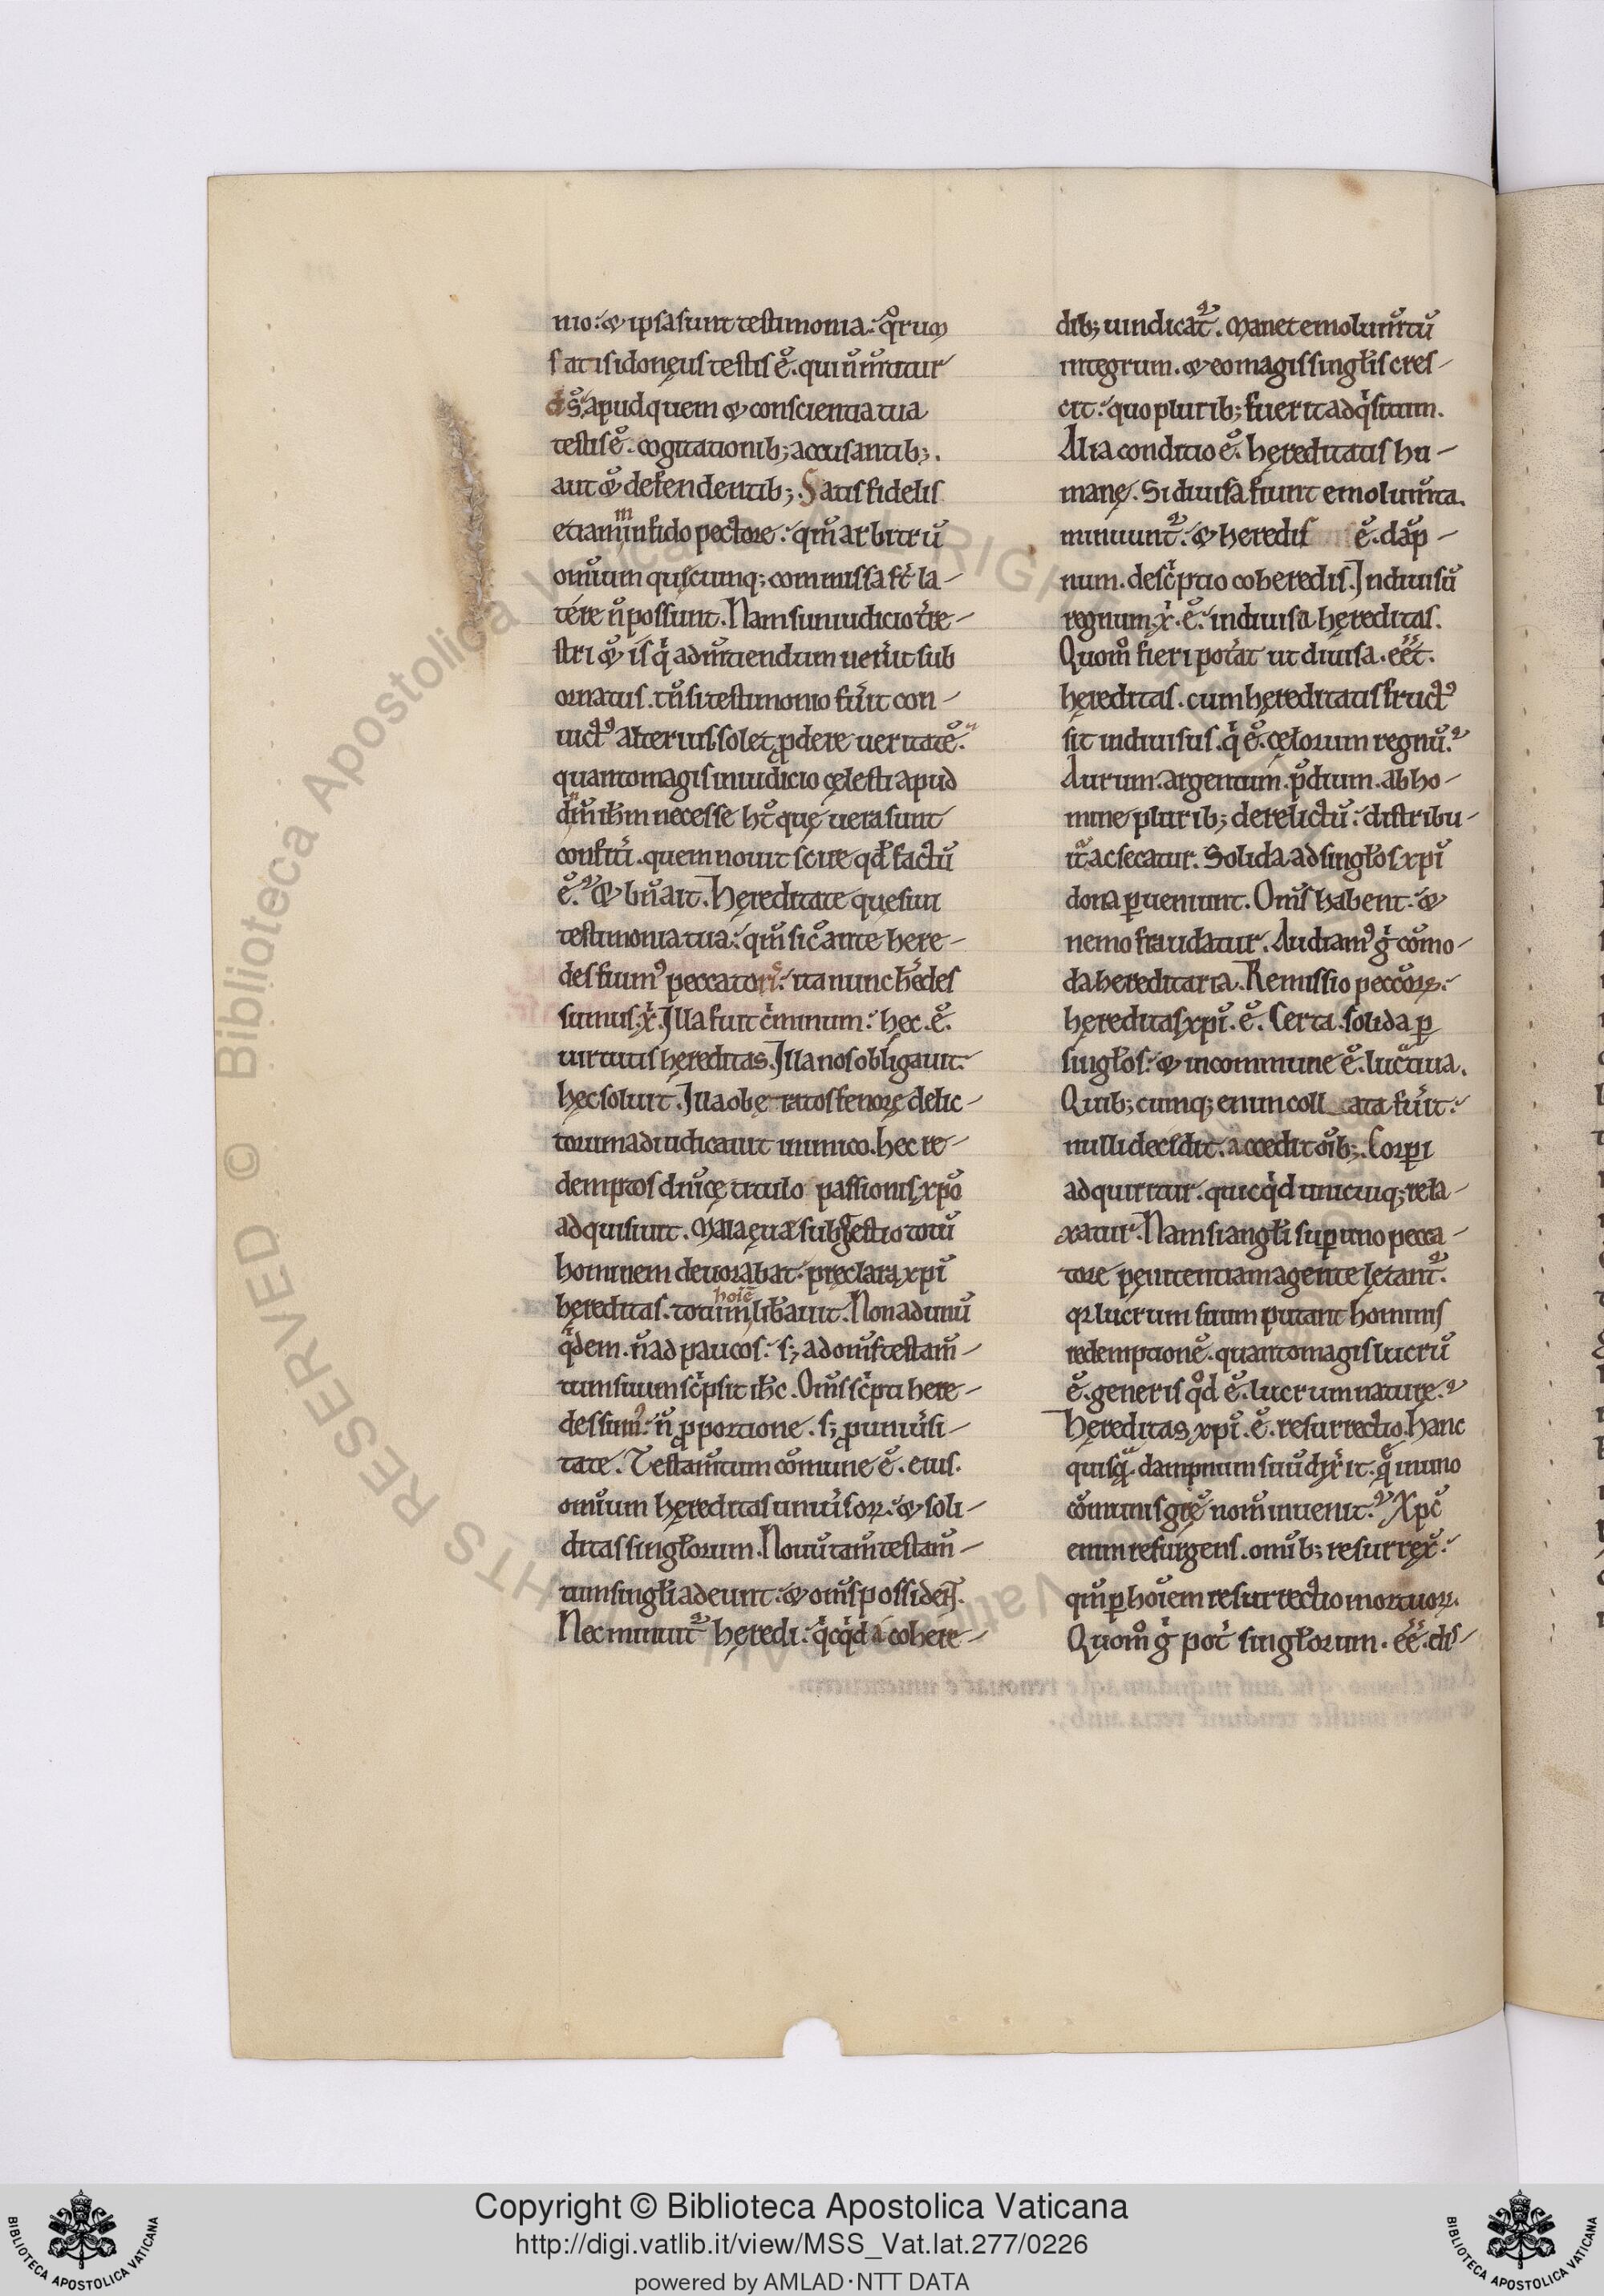 nio: & ipsa sunt testimonia: qͦrum
satis idoneus testis ē. qui n̄ m̄titur
ds̄. apud quem & conscientia tua
testis ē. cogitationib; accusantib;.
aut & defendentib;. Satis fidelis
etiam in fido pectore: qm̄ arbitrū
om̄ium quęcumq; commissa st̄ la-
tere n̄ possunt. Nam si in iudicio tr̄re-
stri & is q̇ ad m̄tiendum uen̄it sub
ornatus. tn̄ si testimonio fūit con-
uict᾽ alterius. solet ꝓdere ueritatē.
quanto magis in iudicio cęlesti apud
dn̄m ih̄m necesse ht̄ quę uera sunt
confit̄i. quem nouit scire qd̄ factū
ē. & bn̄ ait. Hereditate quęsiui
testimonia tua: qm̄ sic ante here-
des fuim᾽ peccatoris: ita nunc h̄edes
sumus xp̄i. Illa fuit c̄minum: hec .ē.
uirtutis hereditas. Illa nos obligauit.
hęc soluit. Illa obęratos fenore delic-
torum adiudicauit inimico. hec re-
demptos dn̄icę titulo passionis xpo
adquisiuit. Mala ęuæ subgestio totū
hominem deuorabat. preclara xpi
hereditas. totum hoiē lib̄auit. Non ad unū
q̇dem. n̄ ad paucos: s; ad om̄s testam̄-
tum suum sc̄psit ih̄c. Om̄s sc̄pti here-
des sum᾽. n̄ ꝓ portione. s; ꝓ uniūsi-
tate. Testam̄tum cōmune ē. eius.
om̄ium hereditas uniūsoꝝ. & soli-
ditas singłorum. Nouū tam̄ testam̄-
tum singłi adeunt: & om̄s possident.
Nec minuit᾽ heredi: q̇cq̇d a cohere-
dib; uindicat᾽. Manet emolum̄tū
integrum. & eo magis singłis cres-
cit: quo plurib; fuerit adq̇situm.
Alia conditio ē. hereditatis hu-
manę. Si diuisa fiunt emolum̄ta.
minuunt᾽: & heredis ē. dāp-
num. desc̄ptio coheredis. Indiuisū
regnum x̄. ē. indiuisa hereditas.
Quom̄ fieri potat ut diuisa .eēt.
hereditas. cum hereditatis fruct᾽
sit indiuisus. q̇ ē. cęlorum regnū.
Aurum. argentum. p̄dium. ab ho-
mine plurib; derelictū: distribu-
it᾽ ac secatur. Solida ad singłos xpi
dona ꝑueniunt. Om̄s habent: &
nemo fraudatur. Audiam᾽ ḡ cōmo-
da hereditaria. Remissio peccōꝝ:
hereditas xpi. ē. Certa. solida ꝑ
singłos: & in commune ē. luc̄tiua.
Quib; cumq; enim coll ata fūit:
nulli decidit. accedit oīb;. Corpi
adquiritur. quicq̇d unicuiq; rela-
xatur. Nam si angłi sup̄ uno pecca-
tore penitentiam agente letant᾽.
qꝛ lucrum suum putant hominis
redemptionē. quanto magis lucrū
ē. generis qd̄ ē. lucrum naturę.
Hereditas xpi. ē. resurrectio. hanc
quisq̄. dampnum suū dix̄it. q̄ in uno
cōmunis grē nom̄ inuenit. Xpc̄
enim resurgens. om̄ib; resurrex̄:
qm̄ ꝑ hoīem resurrectio mortuoꝝ.
Quom̄ ḡ pot̄ singłorum. eē. dis-
Copyright © Biblioteca Apostolica Vaticana
http://digi.vatlib.it/view/MSS_Vat.lat.277/0226
powered by AMLAD·NTT DATA